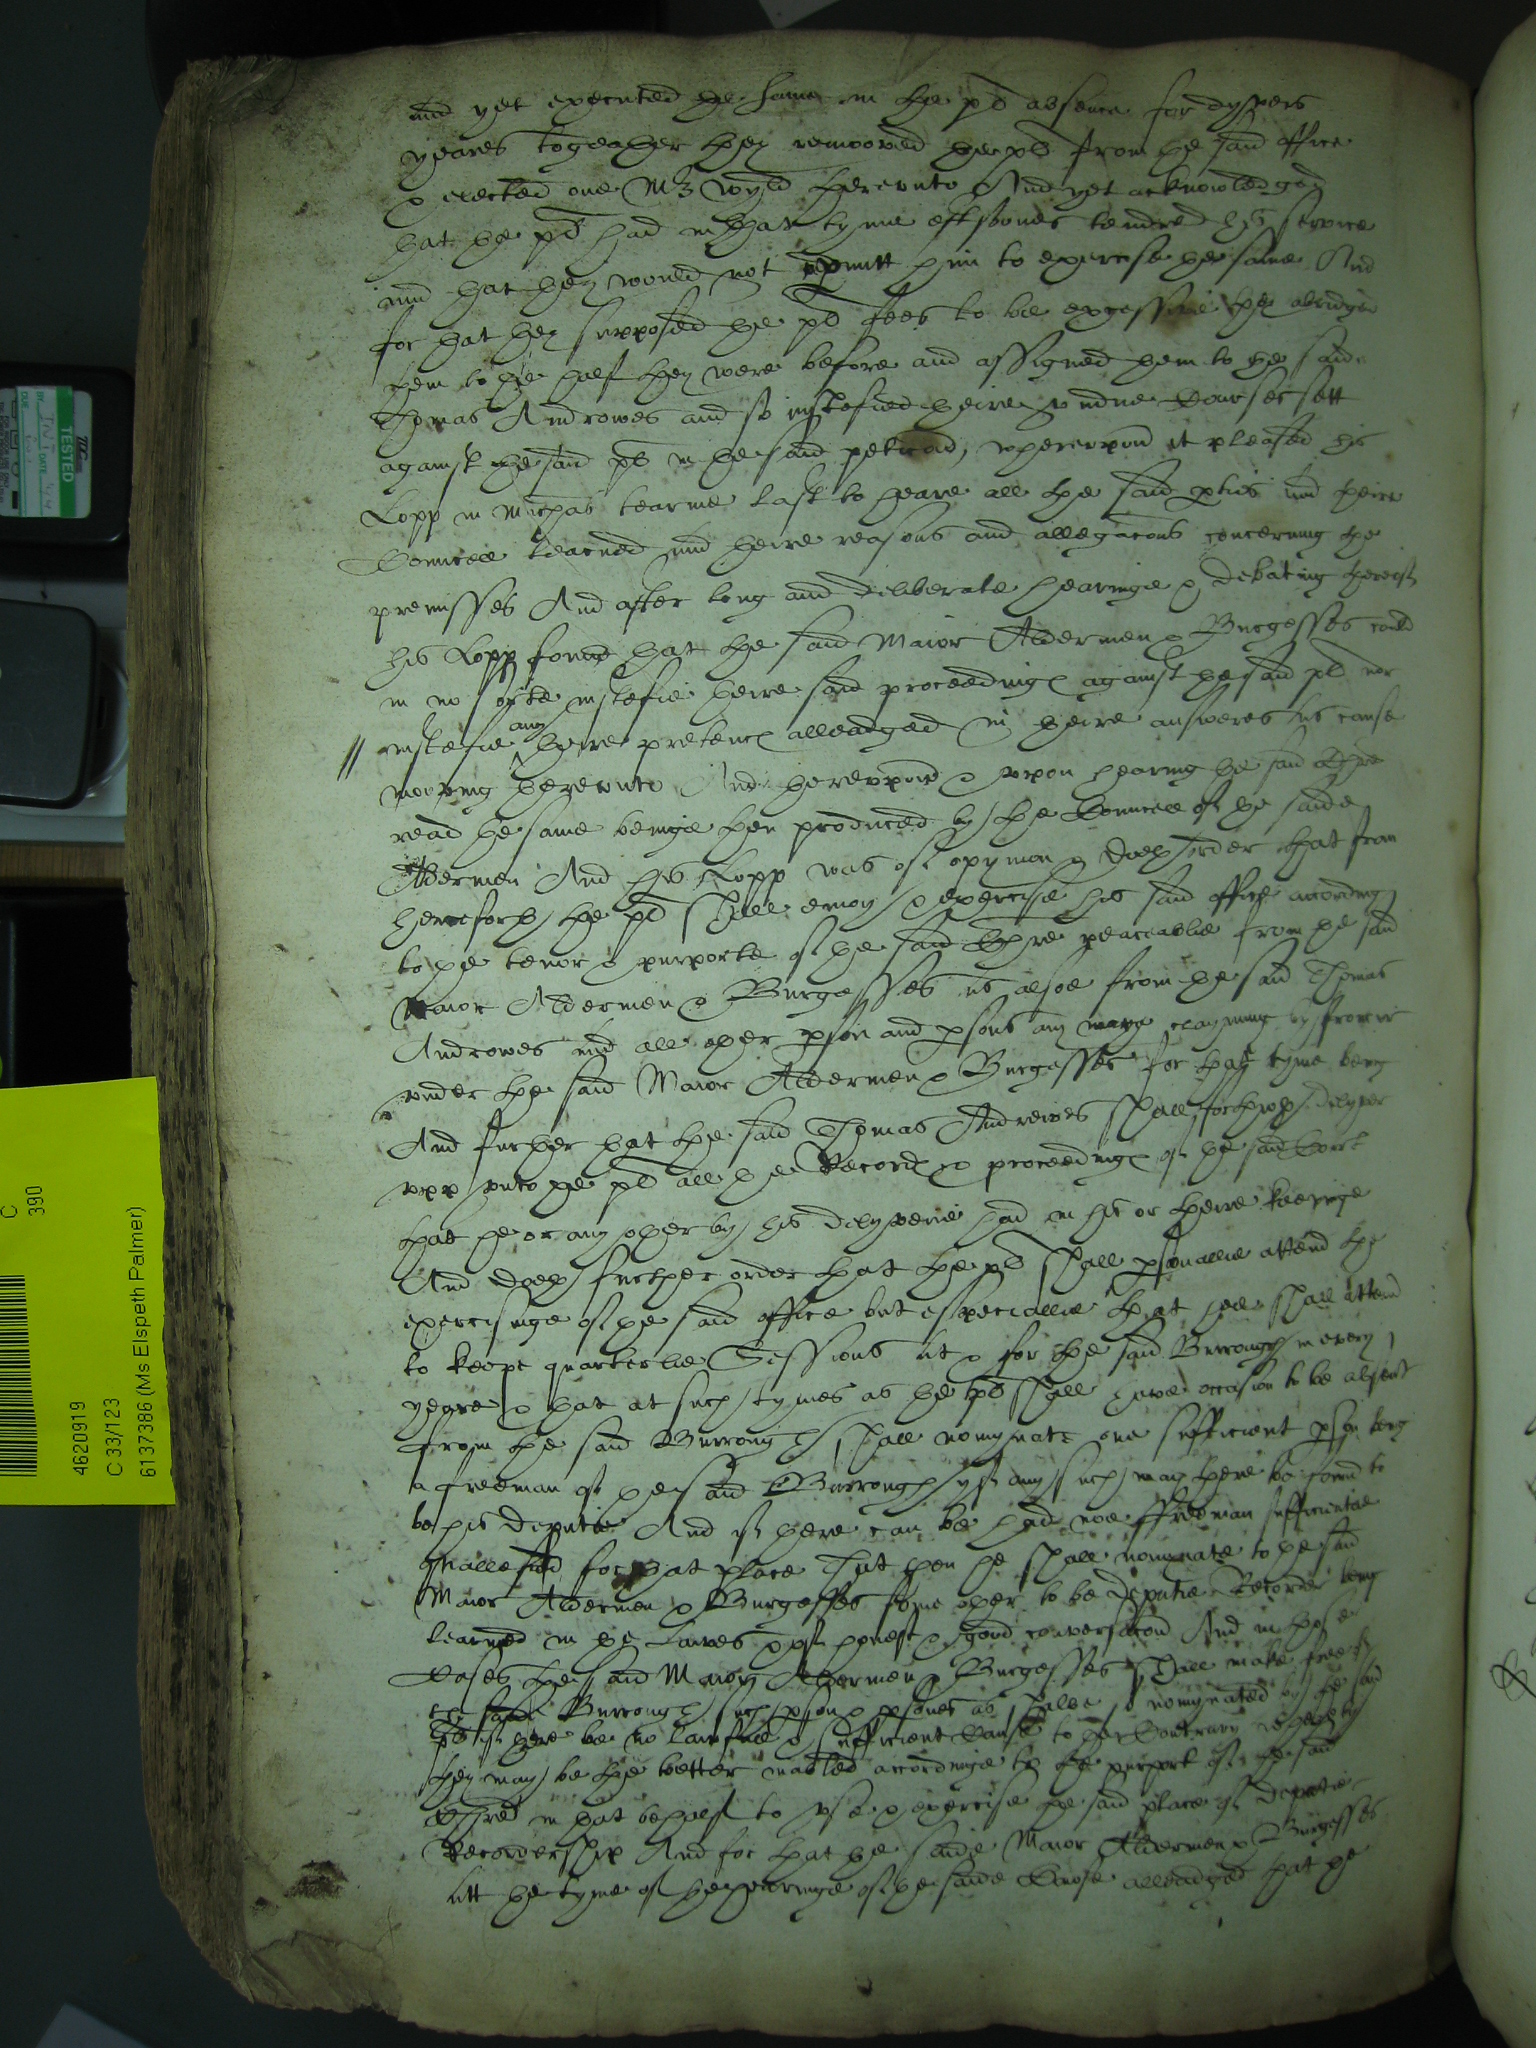 and yet executed the same in the pl absence for dyvers
yeares togeather they remooved the pl from the said office
& elected one Mr Wyld thereunto And yet acknowledged
that the pl had in that tyme eftsoones tendred his service
and that they would not permitt him to exercise the same And
for that they supposed the pl fees to be excessive they abridged
them to the half they were before and assigned them to the said
Thomas Androwes and so justefied theire undue Courses sett
against the said pl in the said peticon, whereupon it pleased his
Lopp in Michas tearme last to heare all the said pties and theire
Councell learned and theire reasons and allegacons concerning the
premisses And after long and deliberate hearinge & debating thereof
his Lopp found that the said Maior Aldermen & Burgesses could
in no sorte justefie theire said proceeding against the said pl nor
justefie any theire pretence alleadged in theire answeres as cause
mooving thereunto And thereupon & upon hearing the said Chre
read the same beinge then produced by the Councell of the saide
Aldermen And his Lopp was of opynion & doth order that from
henceforth the pl shall enioy & exercise his said office according
to the tenor & purporte of the said Chre peaceablie from the said
Maior Aldermen & Burgesses as alsoe from the said Thomas
Androwes and all other pson and psons any wayes clayming by from or
under the said Maior Aldermen & Burgesses for that tyme being
And further that the said Thomas Andrewes shall forthwth delyver
upp unto the pl all the Records & proceedings of the said Court
that he or any other by his delyverie had in his or theire keepinge
And doth further order that the pl shall psonallie attend the
exercisinge of the said office but especiallie that hee shall attend
to keepe quarterlie Sessions at & for the said Burrough in every
yeare & that at such tymes as the pl shall have occasion to be absent
from the said Burrough shall nomynate one sufficient pson being
a freeman of the said Burrough yf any such may there be found to
be his deputie And if there can be had noe ffreeman sufficientlie
quallefied for that place That then he shall nominate to the said
Maior Aldermen & Burgesses some other to be deputie Recorder being
learned in the lawes & of honest & good conversacon And in those
Cases the said Maior Aldermen & Burgesses shall make free of
the said Burrough such pson & psones as shalbe so nomynated by the said
pl if there be no lawfull & sufficient Cause to the Contrary whereby
they may be the better inabled accordinge to the purport of the said
Chre in that behalf to use & exercise the said place of deputie
Recordershipp And for that the saide Maior Aldermen & Burgesses
att the tyme of the hearinge of the saide Cause alleadged that the
TESTED
BY
DATE
DUE
C
390
4620919
C 33/123
6137386 (Ms Elspeth Palmer)